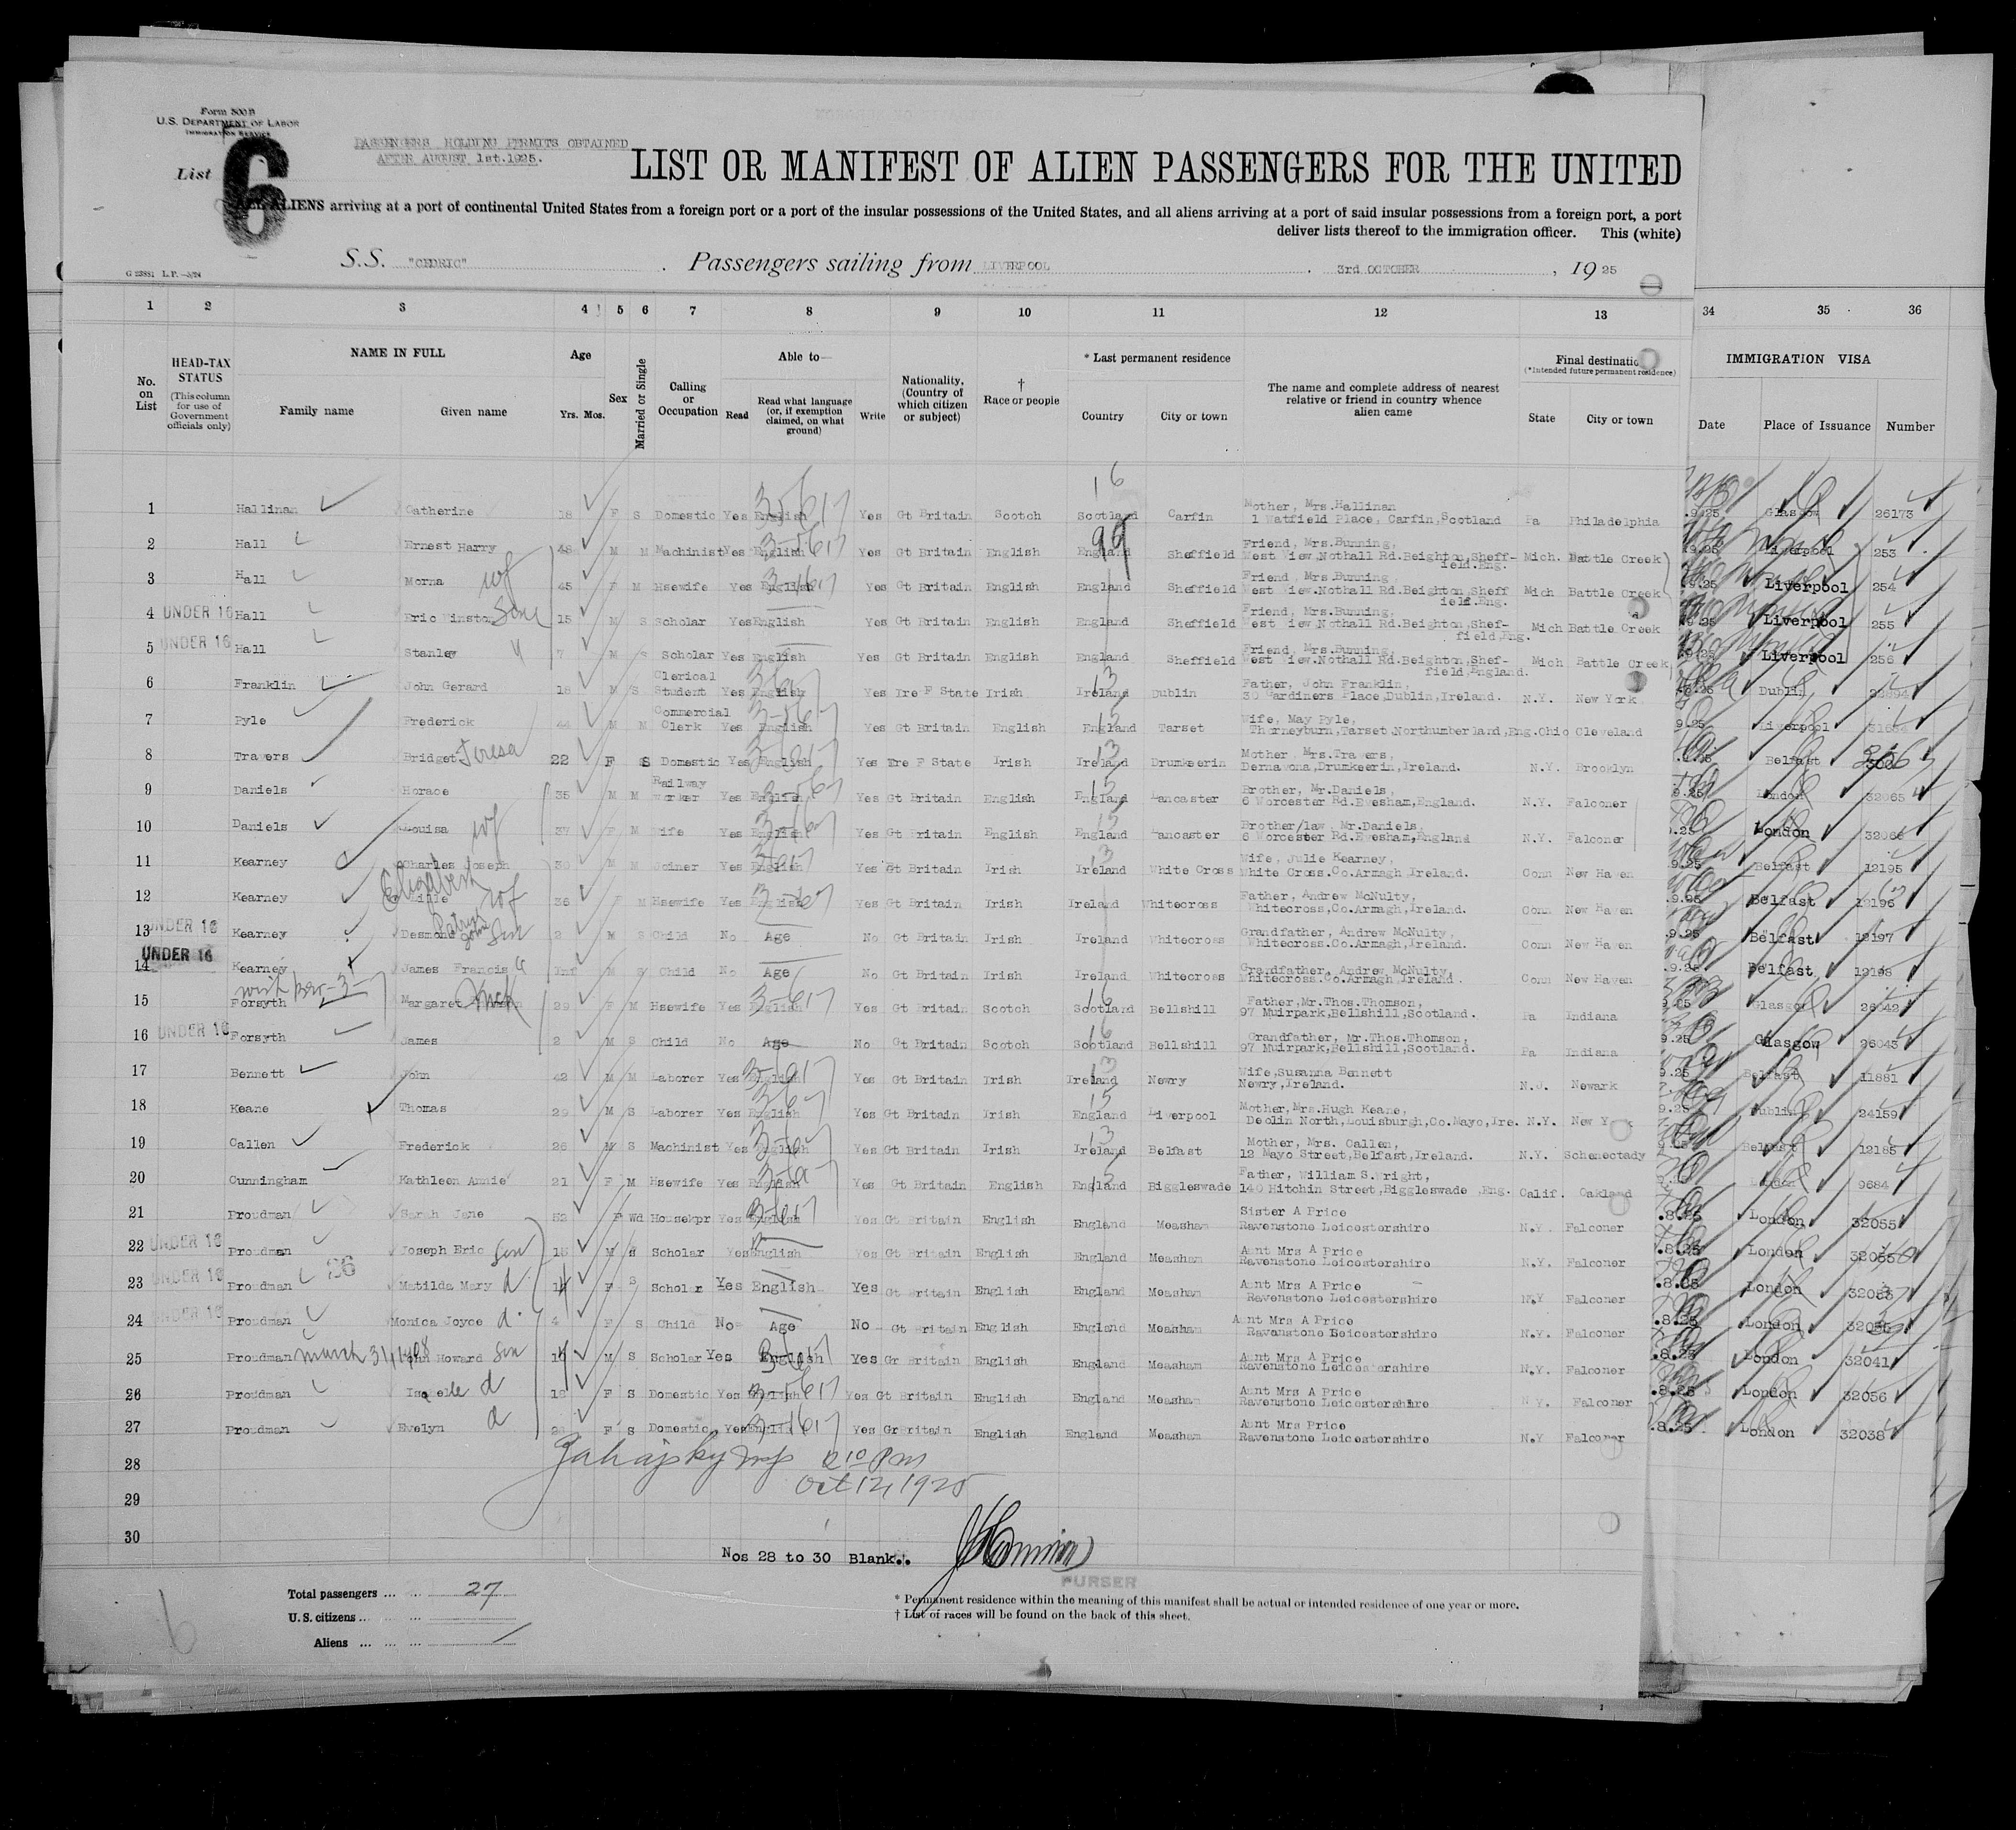 Form 500 B
U.S. DEPARTMENT OF LABOR
IMMIGRATION SERVICE
PASSENGERS HOLDING PERMITS OBTAINED
AFTER AUGUST 1st.1925.
List 6
LIST OR MANIFEST OF ALIEN PASSENGERS FOR THE UNITED
ALL ALIENS arriving at a port of continental United States from a foreign port or a port of the insular possessions of the United States, and all aliens arriving at a port of said insular possessions from a foreign port, a port
deliver lists thereof to the immigration officer. This (white)
S.S. "CEDRIC" . Passengers sailing from LIVERPOOL . 3rd OCTOBER , 19 25
G 23881 L.P.—3/24
1 2 3 4 5 6 7 8 9 10 11 12 13 34 35 36
No. on List
HEAD-TAX STATUS (This column for use of Government officials only)
NAME IN FULL
Family name Given name
Age
Yrs. Mos.
Sex
Married or Single
Calling or Occupation
Able to—
Read Read what language (or, if exemption claimed, on what ground) Write
Nationality, (Country of which citizen or subject)
† Race or people
* Last permanent residence
Country City or town
The name and complete address of nearest relative or friend in country whence alien came
Final destination
(*Intended future permanent residence)
State City or town
IMMIGRATION VISA
Date Place of Issuance Number
1 Hallinan Catherine 18 F S Domestic Yes English Yes Gt Britain Scotch Scotland Carfin Mother, Mrs.Hallinan 1 Watfield Place, Carfin,Scotland Pa Philadelphia .9.25 Glasgow 26173
2 Hall Ernest Harry 48 M M Machinist Yes English Yes Gt Britain English England Sheffield Friend, Mrs.Bunning, West View,Nothall Rd.Beighton,Sheff-ield.Eng. Mich. Battle Creek .9.25 Liverpool 253
3 Hall Morna wf 45 F M Hsewife Yes English Yes Gt Britain English England Sheffield Friend, Mrs.Bunning West View.Nothall Rd.Beighton,Sheff ield.Eng. Mich Battle Creek .9.25 Liverpool 254
4 UNDER 16 Hall Eric Winston Son 15 M S Scholar Yes English Yes Gt Britain English England Sheffield Friend, Mrs.Bunning, West iew Nothall Rd.Beighton,Shef-field,Eng. Mich Battle Creek .9.25 Liverpool 255
5 UNDER 16 Hall Stanley 7 M S Scholar Yes English Yes Gt Britain English England Sheffield Friend, Mrs.Bunning, West View.Nothall Rd.Beighton,Shef-field,England. Mich Battle Creek .9.25 Liverpool 256
6 Franklin John Gerard 18 M S Clerical Student Yes English Yes Ire F State Irish Ireland Dublin Father, John Franklin, 30 Gardiners Place,Dublin,Ireland. N.Y. New York .25 Dublin
7 Pyle Frederick 44 M M Commercial Clerk Yes English Yes Gt Britain English England Tarset Wife, May Pyle, Thorneyburn,Tarset Northumberland,Eng. Ohio Cleveland 9.25 Liverpool
8 Travers Bridget Teresa 22 F S Domestic Yes English Yes Ire F State Irish Ireland Drumkeerin Mother Mrs.Travers, Dernawona,Drumkeerin,Ireland. N.Y. Brooklyn Belfast
9 Daniels Horace 35 M M Railway worker Yes English Yes Gt Britain English England Lancaster Brother, Mr.Daniels, 6 Worcester Rd.Evesham,England. N.Y. Falconer 9.25 London 32065
10 Daniels Louisa wf 37 F M Wife Yes English Yes Gt Britain English England Lancaster Brother/law, Mr.Daniels, 6 Worcester Rd.Evesham,England N.Y. Falconer 9.25 London 32066
11 Kearney Charles Joseph 30 M M Joiner Yes English Yes Gt Britain Irish Ireland White Cross Wife, Julie Kearney, White Cross.Co.Armagh,Ireland. Conn New Haven .9.25 Belfast 12195
12 Kearney Elizabeth wf 36 F M Hsewife Yes English Yes Gt Britain Irish Ireland Whitecross Father, Andrew McNulty, Whitecross,Co.Armagh,Ireland. Conn New Haven .9.25 Belfast 12196
13 UNDER 16 Kearney Desmond Son 2 M S Child No Age No Gt Britain Irish Ireland Whitecross Grandfather, Andrew McNulty, Whitecross.Co.Armagh,Ireland. Conn New Haven .9.25 Belfast 12197
14 UNDER 16 Kearney James Francis Inf M S Child No Age No Gt Britain Irish Ireland Whitecross Grandfather, Andrew McNulty Whitecross.Co.Armagh Ireland. Conn New Haven 9.25 Belfast 12198
15 Forsyth Margaret 29 F M Hsewife Yes English Yes Gt Britain Scotch Scotland Bellshill Father,Mr.Thos.Thomson, 97 Muirpark,Bellshill,Scotland. Pa Indiana Glasgow 26042
16 UNDER 16 Forsyth James 2 M S Child No Age No Gt Britain Scotch Scotland Bellshill Grandfather, Mr.Thos.Thomson, 97 Muirpark,Bellshill,Scotland. Pa Indiana 9.25 Glasgow 26043
17 Bennett John 42 M M Laborer Yes English Yes Gt Britain Irish Ireland Newry Wife,Susanna Bennett Newry,Ireland. N.J. Newark 9.25 Belfast 11881
18 Keane Thomas 29 M S Laborer Yes English Yes Gt Britain Irish England Liverpool Mother,Mrs.Hugh Keane, Deolin North,Louisburgh,Co.Mayo,Ire. N.Y. New York 9.25 Dublin 24159
19 Callen Frederick 26 M S Machinist Yes English Yes Gt Britain Irish Ireland Belfast Mother, Mrs. Callen, 12 Mayo Street,Belfast,Ireland. N.Y. Schenectady Belfast 12185
20 Cunningham Kathleen Annie 21 F M Hsewife Yes English Yes Gt Britain English England Biggleswade Father, William S.Wright, 140 Hitchin Street,Biggleswade ,Eng. Calif. Oakland London 9684
21 Proudman Sarah Jane 52 F Wd Housekpr Yes English Yes Gt Britain English England Measham Sister A Price Ravenstone Leicestershire N.Y. Falconer .8.25 London 32055
22 UNDER 16 Proudman Joseph Eric Son 15 M S Scholar Yes English Yes Gt Britain English England Measham Aunt Mrs A Price Ravenstone Leicestershire N.Y. Falconer .8.25 London
23 UNDER 16 Proudman Matilda Mary d 14 F S Scholar Yes English Yes Gt Britain English England Measham Aunt Mrs A Price Ravenstone Leicestershire N.Y Falconer .8.25 London
24 UNDER 16 Proudman Monica Joyce d. 4 F S Child No Age No Gt Britain English England Measham Aunt Mrs A Price Ravenstone Leicestershire N.Y. Falconer .8.25 London
25 Proudman March 31, 1908 John Howard Son 16 M S Scholar Yes English Yes Gr Britain English England Measham Aunt Mrs A Price Ravenstone Leicestershire N.Y. Falconer .8.25 London 32041
26 Proudman Isabelle d 18 F S Domestic Yes English Yes Gt Britain English England Measham Aunt Mrs A Price Ravenstone Leicestershire N.Y. Falconer .8.25 London 32056
27 Proudman Evelyn d F S Domestic Yes English Yes Gr Britain English England Measham Aunt Mrs Price Ravenstone Leicestershire N.Y Falconer .8.25 London 32038
28
2 10 Pm
29
Oct 12, 1925
30
Nos 28 to 30 Blank.
PURSER
Total passengers ... 27
U. S. citizens ...
Aliens ...
* Permanent residence within the meaning of this manifest shall be actual or intended residence of one year or more.
† List of races will be found on the back of this sheet.
6